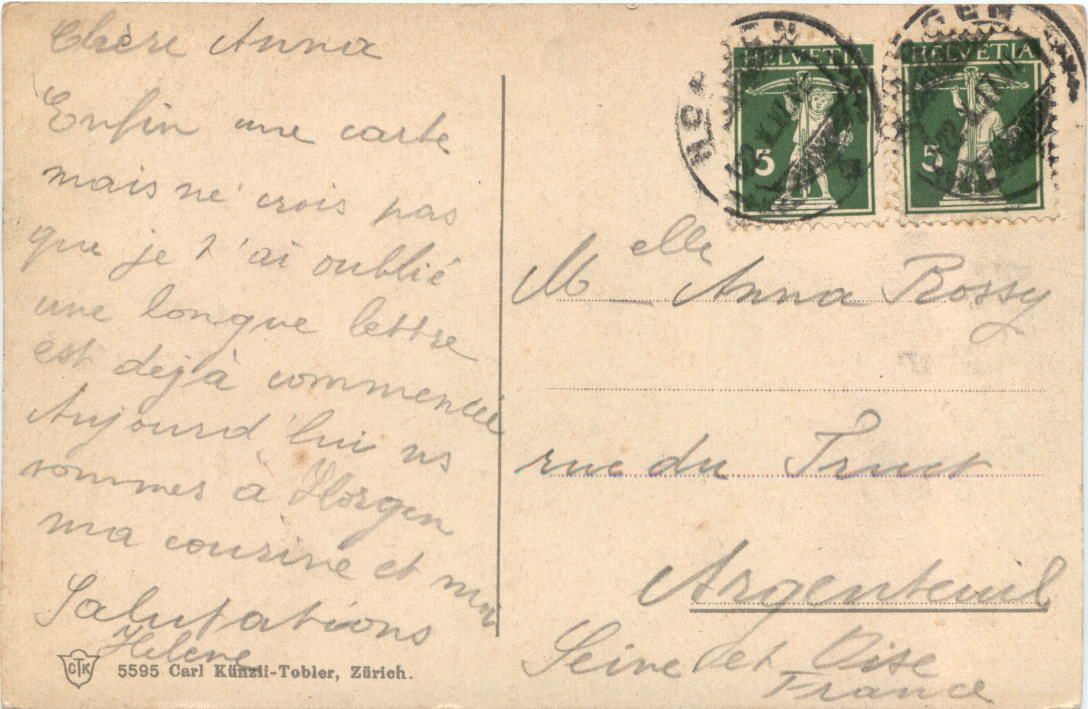 Chère Anna
Enfin une carte
mais ne crois pas
que je t'ai oublié
une longue lettre
est dejà commencée
Aujourd'hui ns
sommes à Horgen
ma cousine et moi
Salutations
Helene
CTK
5595 Carl Künzli-Tobler, Zürich.
HORGEN
HELVETIA
5
HELVETIA
5
Melle Anna Rossy
rue du
Argenteuil
Seine et Oise
France